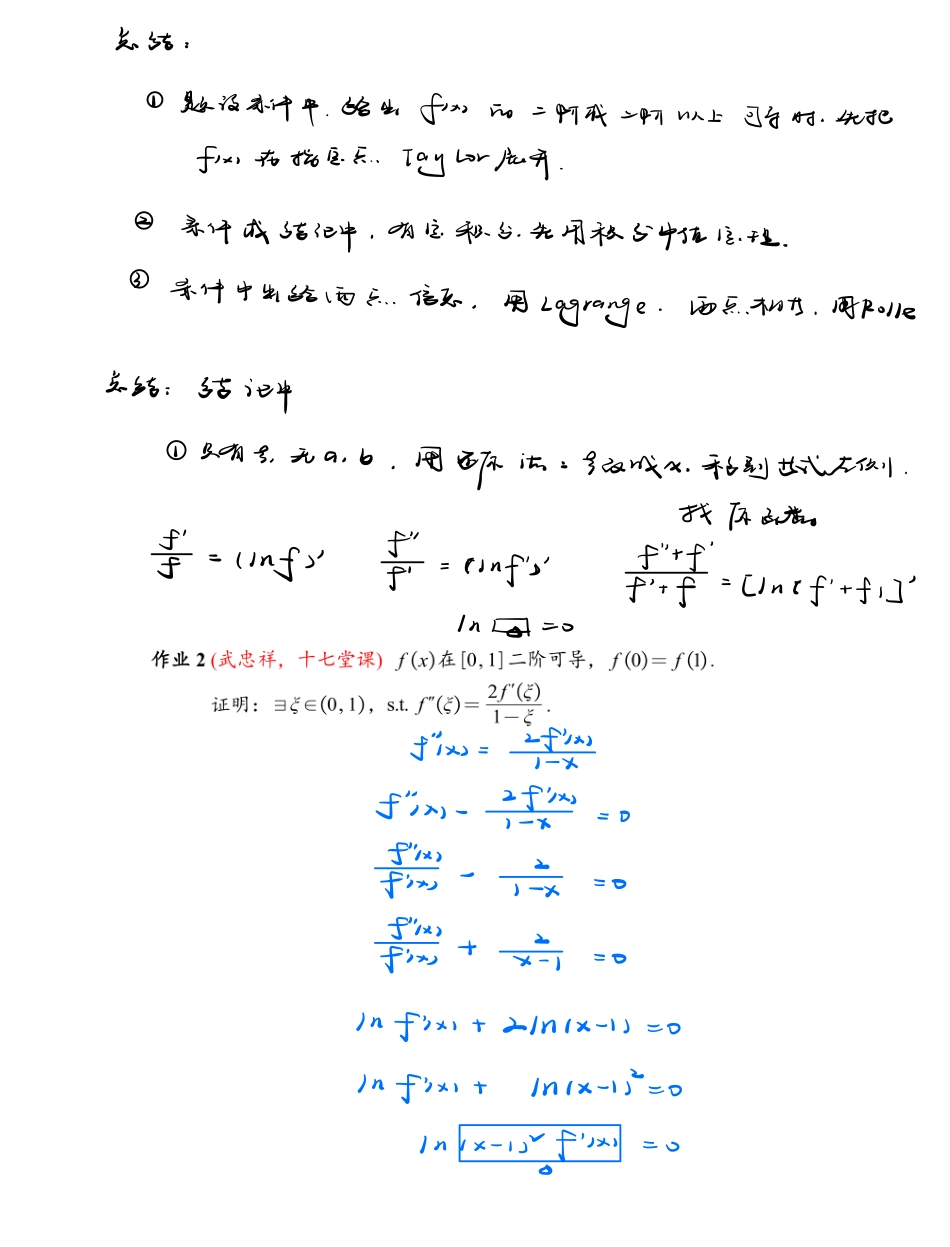 总结：
① 题设条件中. 给出 f(x) 而 二阶或二阶以上 可导时. 先把
f(x) 在指定点.. Taylor 展开.
② 条件或结论中, 有定积分. 先用积分中值定理.
③ 条件中出给两点.. 信息, 用 Lagrange. 两点.相等, 用Rolle
总结: 结论中
① 只有ξ, 无 a, b, 用还原法: ξ改成x. 移到等式左侧.
找原函数。
f'/f = (lnf)' f''/f' = (lnf')' (f''+f')/(f'+f) = [ln(f'+f)]'
ln □ = 0
作业 2 (武忠祥，十七堂课) f(x)在[0,1]二阶可导，f(0)=f(1).
证明：∃ξ∈(0,1)，s.t. f''(ξ)=2f'(ξ)/(1-ξ).
f''(x) = 2f'(x)/(1-x)
f''(x) - 2f'(x)/(1-x) = 0
f''(x)/f'(x) - 2/(1-x) = 0
f''(x)/f'(x) + 2/(x-1) = 0
ln f'(x) + 2ln(x-1) = 0
ln f'(x) + ln(x-1)² = 0
ln (x-1)² f'(x) = 0